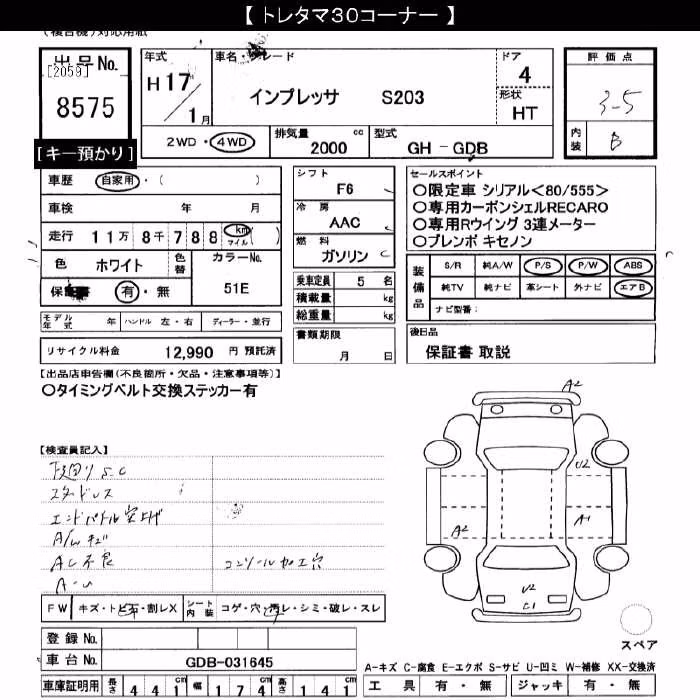 【 トレタマ30コーナー 】
(複合機)対応用紙
出品No.
[2059]
8575
[キー預かり]
年式
H17/1月
車名・グレード
インプレッサ S203
ドア
4
形状
HT
評価点
3-5
内装
B
2WD・4WD
排気量 2000 cc
型式 GH - GDB
車歴 自家用・( )
車検 年 月
走行 11万8千788 km マイル ( )
色 ホワイト
色替
カラーNo.
51E
保証書 有・無
シフト
F6
冷房
AAC
燃料
ガソリン
乗車定員 5 名
積載量 kg
総重量 kg
セールスポイント
〇限定車 シリアル<80/555>
〇専用カーボンシェルRECARO
〇専用Rウイング 3連メーター
〇ブレンボ キセノン
装備品
S/R 純A/W P/S P/W ABS
純TV 純ナビ 革シート 外ナビ エアB
ナビ型番:
モデル年式 年 ハンドル 左・右 ディーラー・並行
書類期限
月 日
後日品
保証書 取説
リサイクル料金 12,990 円 預託済
【出品店申告欄(不良箇所・欠品・注意事項等)】
〇タイミングベルト交換ステッカー有
【検査員記入】
下廻りS.C
スタッドレス
A/Wキズ
AC不良
コンソール加工穴
A2
U2
A2
A1
U2
C1
FW キズ・トビ石・割レX
シート内装 コゲ・穴・汚レ・シミ・破レ・スレ
登録No.
車台No. GDB-031645
スペア
A-キズ C-腐食 E-エクボ S-サビ U-凹ミ W-補修 XX-交換済
車庫証明用 長さ 441cm 幅 174cm 高さ 141cm
工具 有・無 ジャッキ 有・無